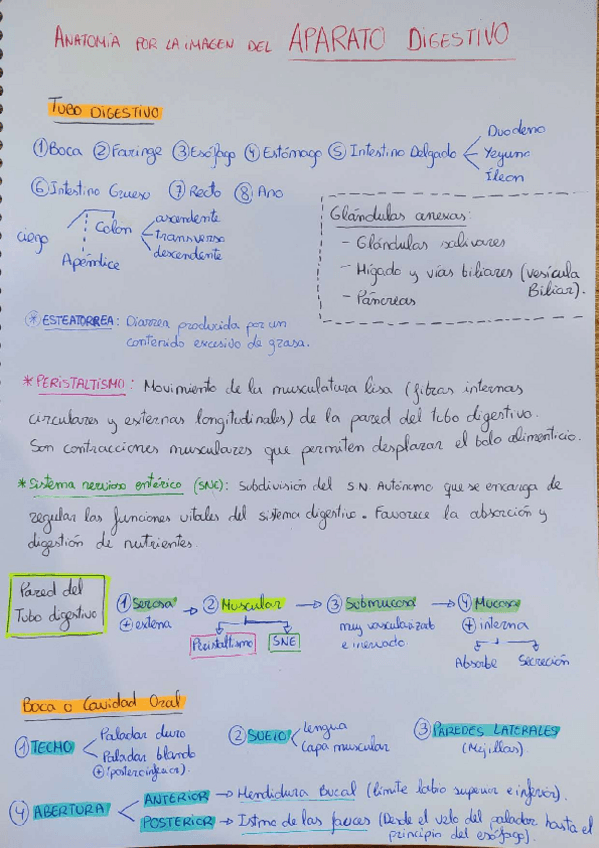 ANATOMÍA POR LA IMAGEN DEL APARATO DIGESTIVO
TUBO DIGESTIVO
① Boca ② Faringe ③ Esófago ④ Estómago ⑤ Intestino Delgado
Duodeno
Yeyuno
Íleon
⑥ Intestino Grueso ⑦ Recto ⑧ Ano
ciego
Apéndice
Colon
ascendente
transverso
descendente
Glándulas anexas:
- Glándulas salivares
- Hígado y vías biliares (vesícula
Biliar).
- Páncreas
* ESTEATORREA: Diarrea producida por un
contenido excesivo de grasa.
* PERISTALTISMO: Movimiento de la musculatura lisa (fibras internas
circulares y externas longitudinales) de la pared del tubo digestivo.
Son contracciones musculares que permiten desplazar el bolo alimenticio.
* Sistema nervioso entérico (SNE): Subdivisión del S.N. Autónomo que se encarga de
regular las funciones vitales del sistema digestivo. Favorece la absorción y
digestión de nutrientes.
Pared del
Tubo digestivo
① Serosa → ② Muscular → ③ Submucosa → ④ Mucosa
⊕ externa
Peristaltismo
SNE
muy vascularizado
e inervado
⊕ interna
Absorbe
Secreción
Boca o Cavidad Oral
① TECHO
Paladar duro
Paladar blando
⊕ (posteroinferior).
② SUELO
Lengua
Capa muscular
③ PAREDES LATERALES
(Mejillas)
④ ABERTURA
ANTERIOR → Hendidura Bucal (límite labio superior e inferior).
POSTERIOR → Istmo de las fauces (Desde el velo del paladar hasta el
principio del esófago).